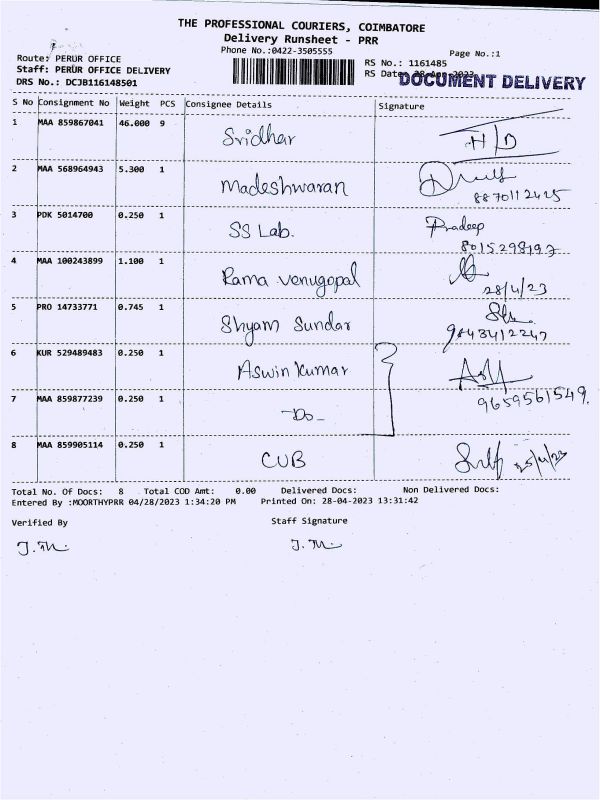 THE PROFESSIONAL COURIERS, COIMBATORE
Delivery Runsheet - PRR
Phone No.:0422-3505555
Page No.:1
Route: PERUR OFFICE
Staff: PERUR OFFICE DELIVERY
DRS No.: DCJB116148501
RS No.: 1161485
RS Date: 28-Apr-2023
DOCUMENT DELIVERY
S No Consignment No Weight PCS Consignee Details Signature
1 MAA 859867041 46.000 9 Sridhar H/D
2 MAA 568964943 5.300 1 Madeshwaran
8870112425
3 PDK 5014700 0.250 1 SS Lab. Pradeep
8015298197
4 MAA 100243899 1.100 1 Rama Venugopal
28/4/23
5 PRO 14733771 0.745 1 Shyam Sundar
9843412247
6 KUR 529489483 0.250 1 Aswin Kumar
9659561549.
7 MAA 859877239 0.250 1 -Do-
8 MAA 859905114 0.250 1 CUB
Total No. Of Docs: 8 Total COD Amt: 0.00 Delivered Docs: Non Delivered Docs:
Entered By :MOORTHYPRR 04/28/2023 1:34:20 PM Printed On: 28-04-2023 13:31:42
Verified By Staff Signature